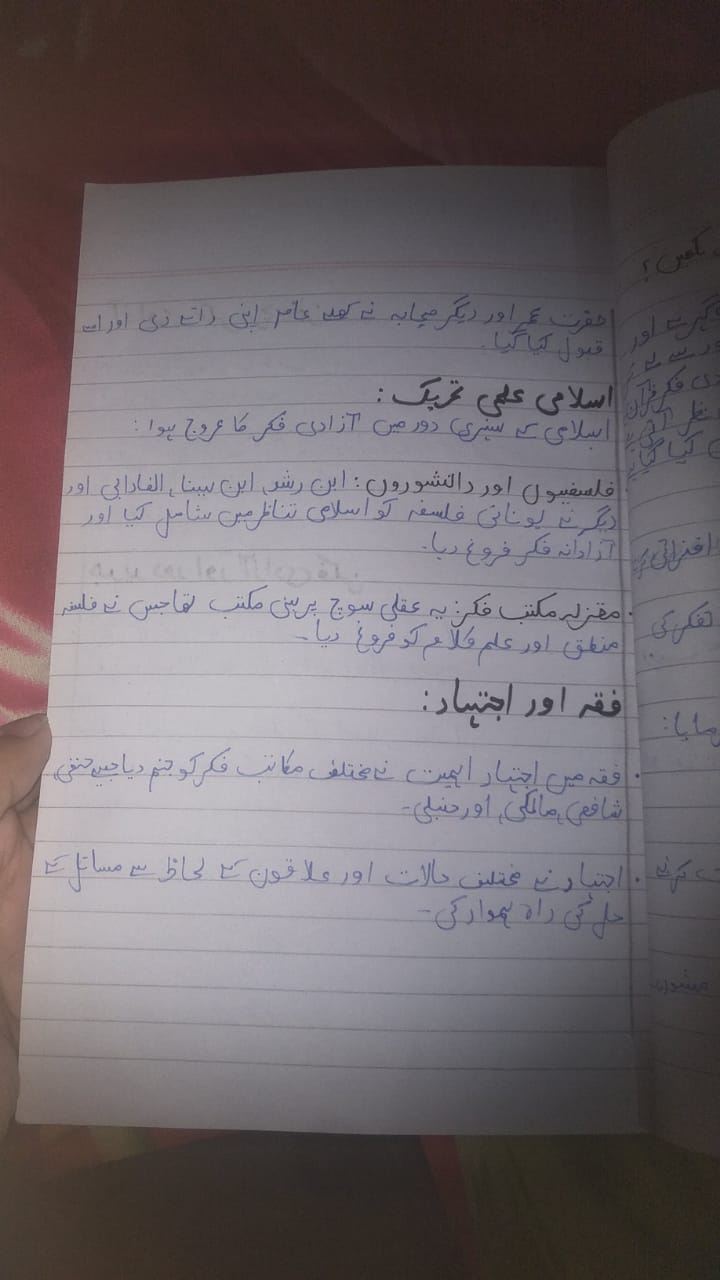 حضرت عمر اور دیگر صحابہ نے کھلے عام اپنی رائے دی اور اسے
قبول کیا گیا۔
اسلامی علمی تحریک:
اسلامی کے سنہری دور میں آزادی فکر کا عروج ہوا:
فلسفیوں اور دانشوروں: ابن رشد، ابن سینا، الفارابی اور
دیگر نے یونانی فلسفہ کو اسلامی تناظر میں شامل کیا اور
آزادانہ فکر فروغ دیا۔
• معتزلہ مکتب فکر: یہ عقلی سوچ پر مبنی مکتب تھا جس نے فلسفہ
منطق اور علم کلام کو فروغ دیا۔
فقہ اور اجتہاد:
• فقہ میں اجتہاد اہمیت نے مختلف مکاتب فکر کو جنم دیا جیسے حنفی
شافعی، مالکی، اور حنبلی۔
• اجتہاد نے مختلف حالات اور علاقوں کے لحاظ سے مسائل کے
حل کی راہ ہموار کی۔